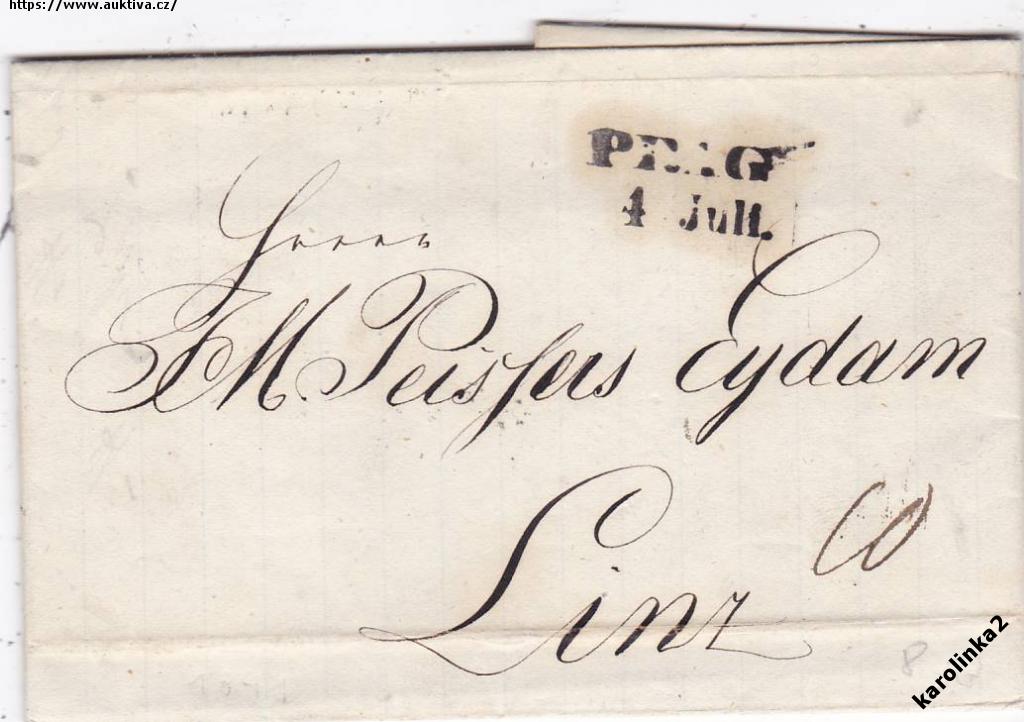 https://www.auktiva.cz/
PRAG
4 Juli.
Herrn
J M Peissers Eydam
Linz
10
karolinka2
8